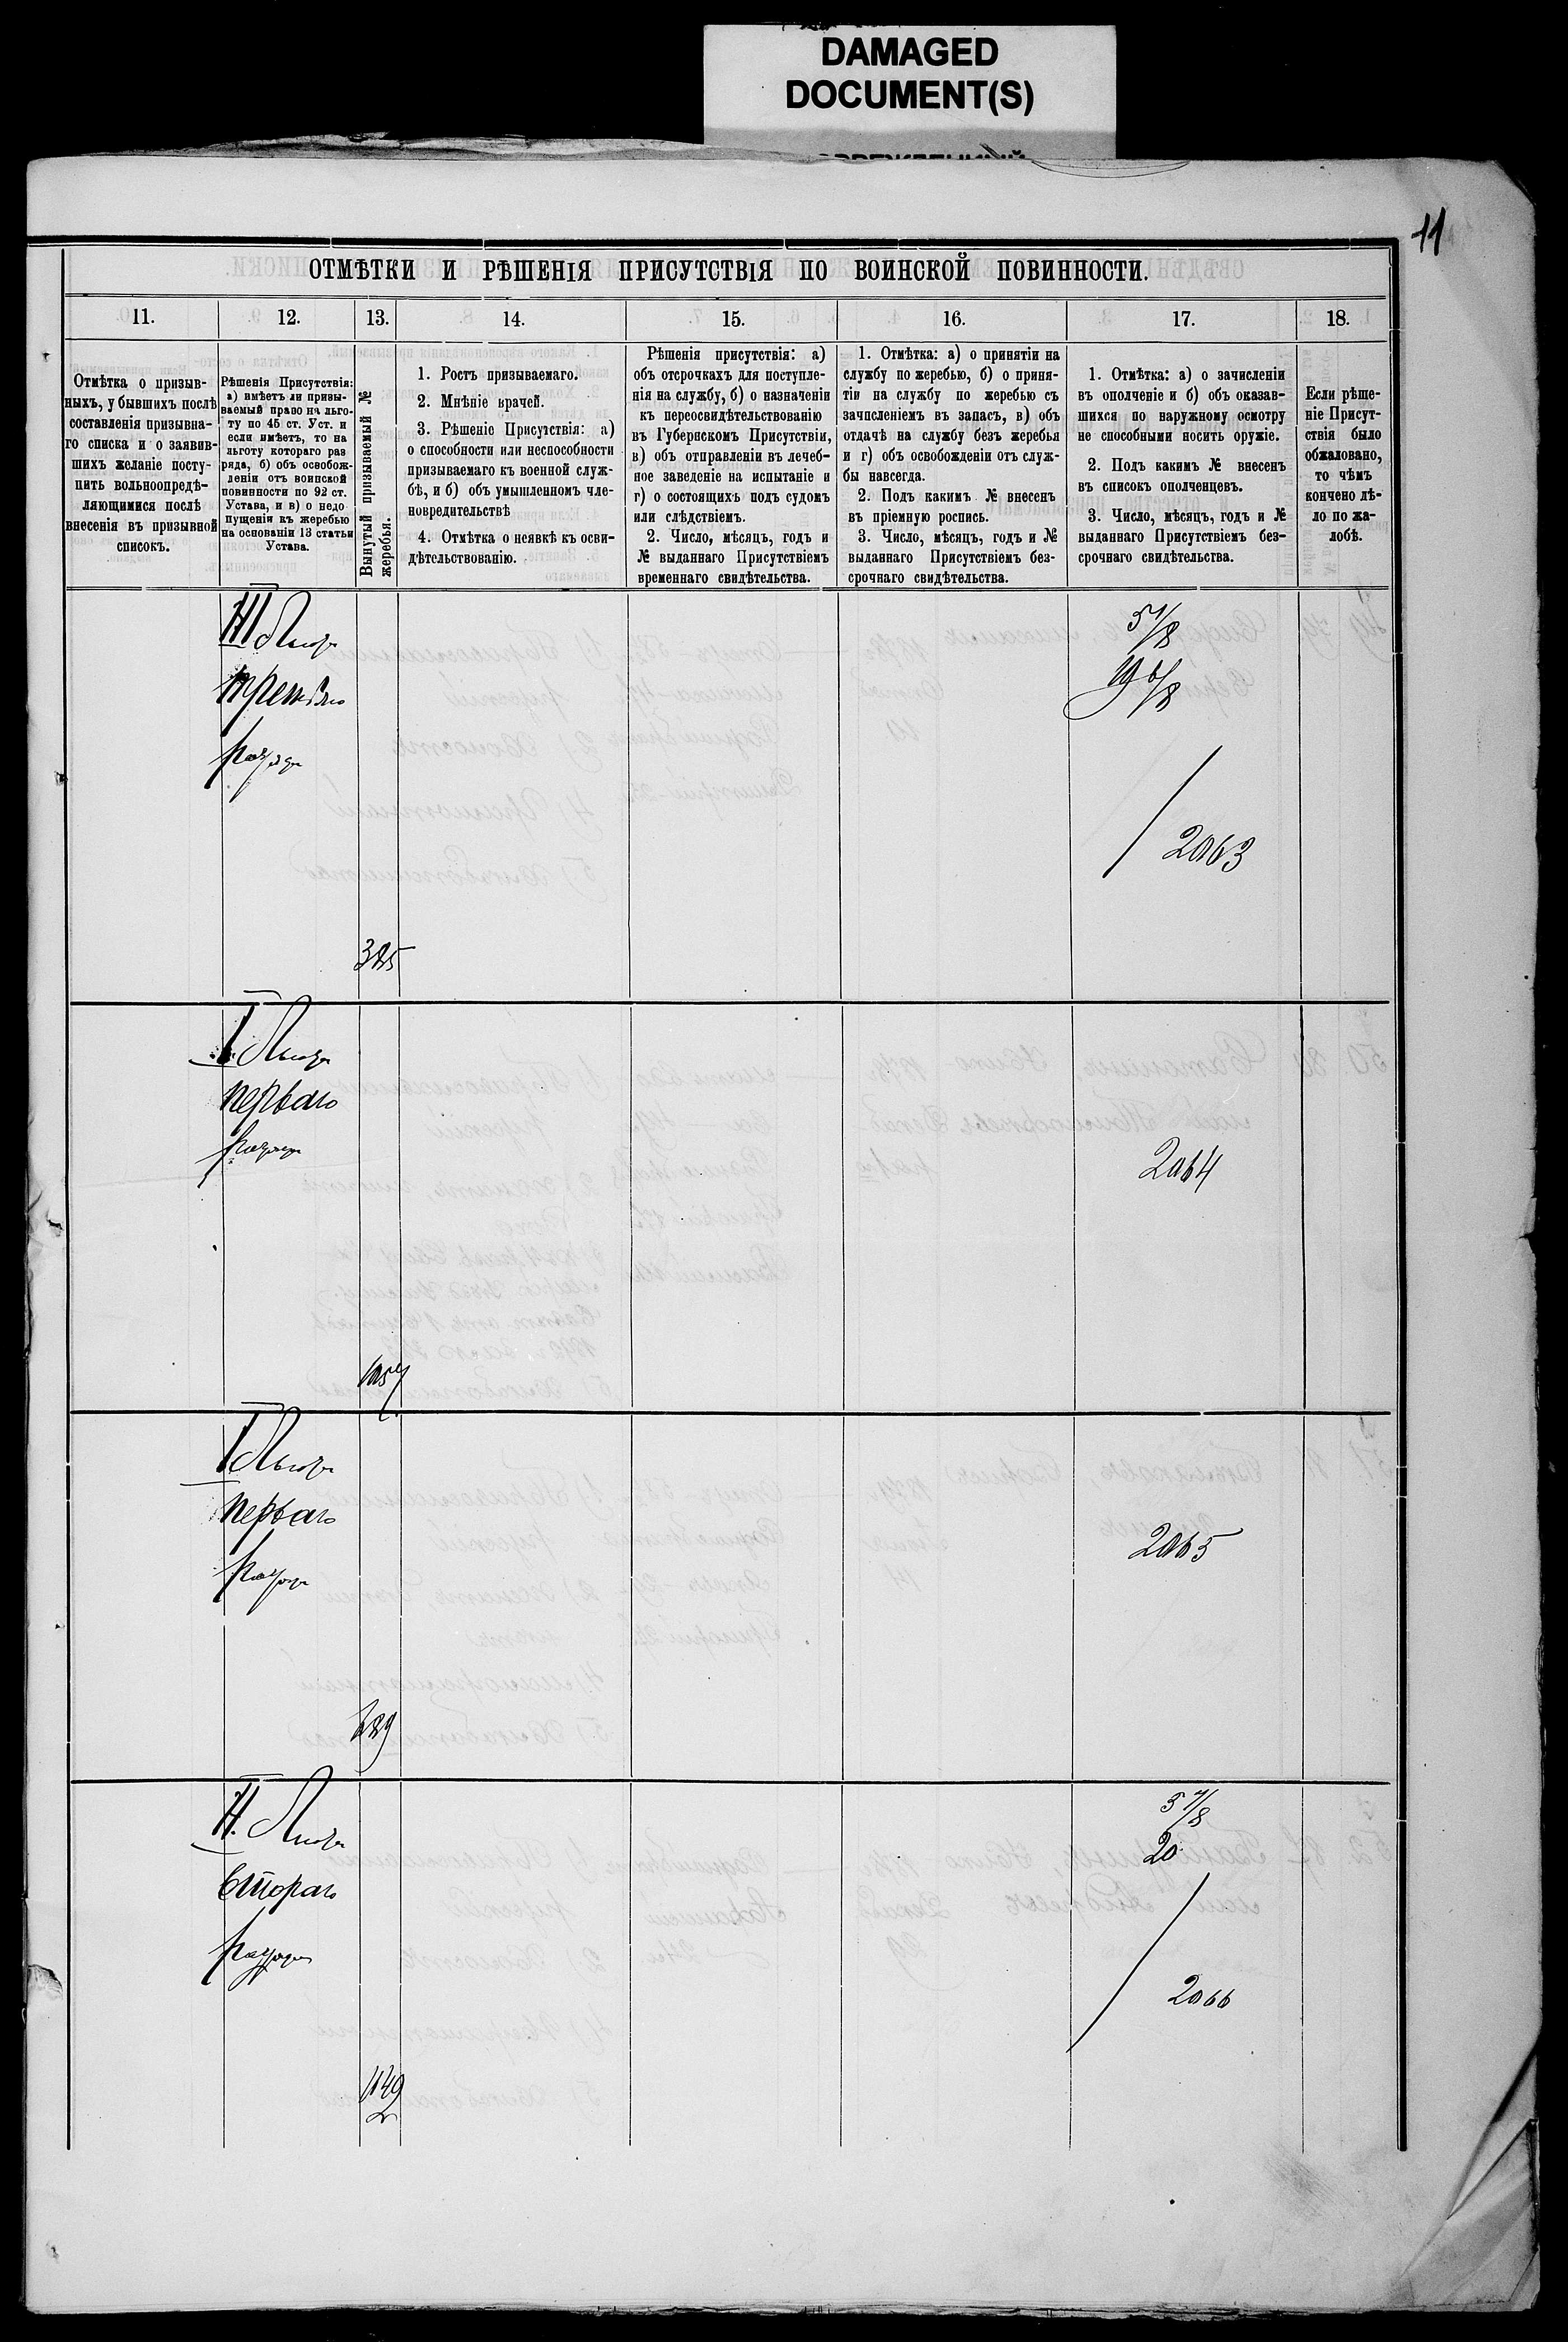 DAMAGED
DOCUMENT(S)
11
ОТМѢТКИ И РѢШЕНІЯ ПРИСУТСТВІЯ ПО ВОИНСКОЙ ПОВИННОСТИ.
11. 12. 13. 14. 15. 16. 17. 18.
Отмѣтка о призыв-
ныхъ, у бывшихъ послѣ
составленія призывна-
го списка и о заявив-
шихъ желаніе посту-
пить вольноопредѣ-
ляющимися послѣ
внесенія въ призывной
списокъ.
Рѣшенія Присутствія:
а) имѣетъ ли призы-
ваемый право на льго-
ту по 45 ст. Уст. и
если имѣетъ, то на
льготу котораго раз
ряда, б) объ освобож-
деніи отъ воинской
повинности по 92 ст.
Устава, и в) о недо
пущеніи къ жеребью
на основаніи 13 статьи
Устава.
Вынутый призываемый №
жеребья.
1. Ростъ призываемаго.
2. Мнѣніе врачей.
3. Рѣшеніе Присутствія: а)
о способности или неспособности
призываемаго къ военной служ-
бѣ, и б) объ умышленномъ чле-
новредительствѣ
4. Отмѣтка о неявкѣ къ осви-
дѣтельствованію.
Рѣшенія присутствія: а)
объ отсрочкахъ для поступле-
нія на службу, б) о назначеніи
къ переосвидѣтельствованію
въ Губернскомъ Присутствіи,
в) объ отправленіи въ лечеб-
ное заведеніе на испытаніе и
г) о состоящихъ подъ судомъ
или слѣдствіемъ.
2. Число, мѣсяцъ, годъ и
№ выданнаго Присутствіемъ
временнаго свидѣтельства.
1. Отмѣтка: а) о принятіи на
службу по жеребью, б) о приня-
тіи на службу по жеребью съ
зачисленіемъ въ запасъ, в) объ
отдачѣ на службу безъ жеребья
и г) объ освобожденіи отъ служ-
бы навсегда.
2. Подъ какимъ № внесенъ
въ пріемную роспись.
3. Число, мѣсяцъ, годъ и №
выданнаго Присутствіемъ без-
срочнаго свидѣтельства.
1. Отмѣтка: а) о зачисленіи
въ ополченіе и б) объ оказав-
шихся по наружному осмотру
не способными носить оружіе.
2. Подъ какимъ № внесенъ
въ списокъ ополченцевъ.
3. Число, мѣсяцъ, годъ и №
выданнаго Присутствіемъ без-
срочнаго свидѣтельства.
Если рѣше-
ніе Присут-
ствія было
обжаловано,
то чѣмъ
кончено дѣ-
ло по жа-
лобѣ.
III Льгота
третьяго
разряда
385
2063
I Льгота
перваго
разряда
1057
2064
I Льгота
перваго
разряда
389
2065
II. Льгота
втораго
разряда
1149
20
2066